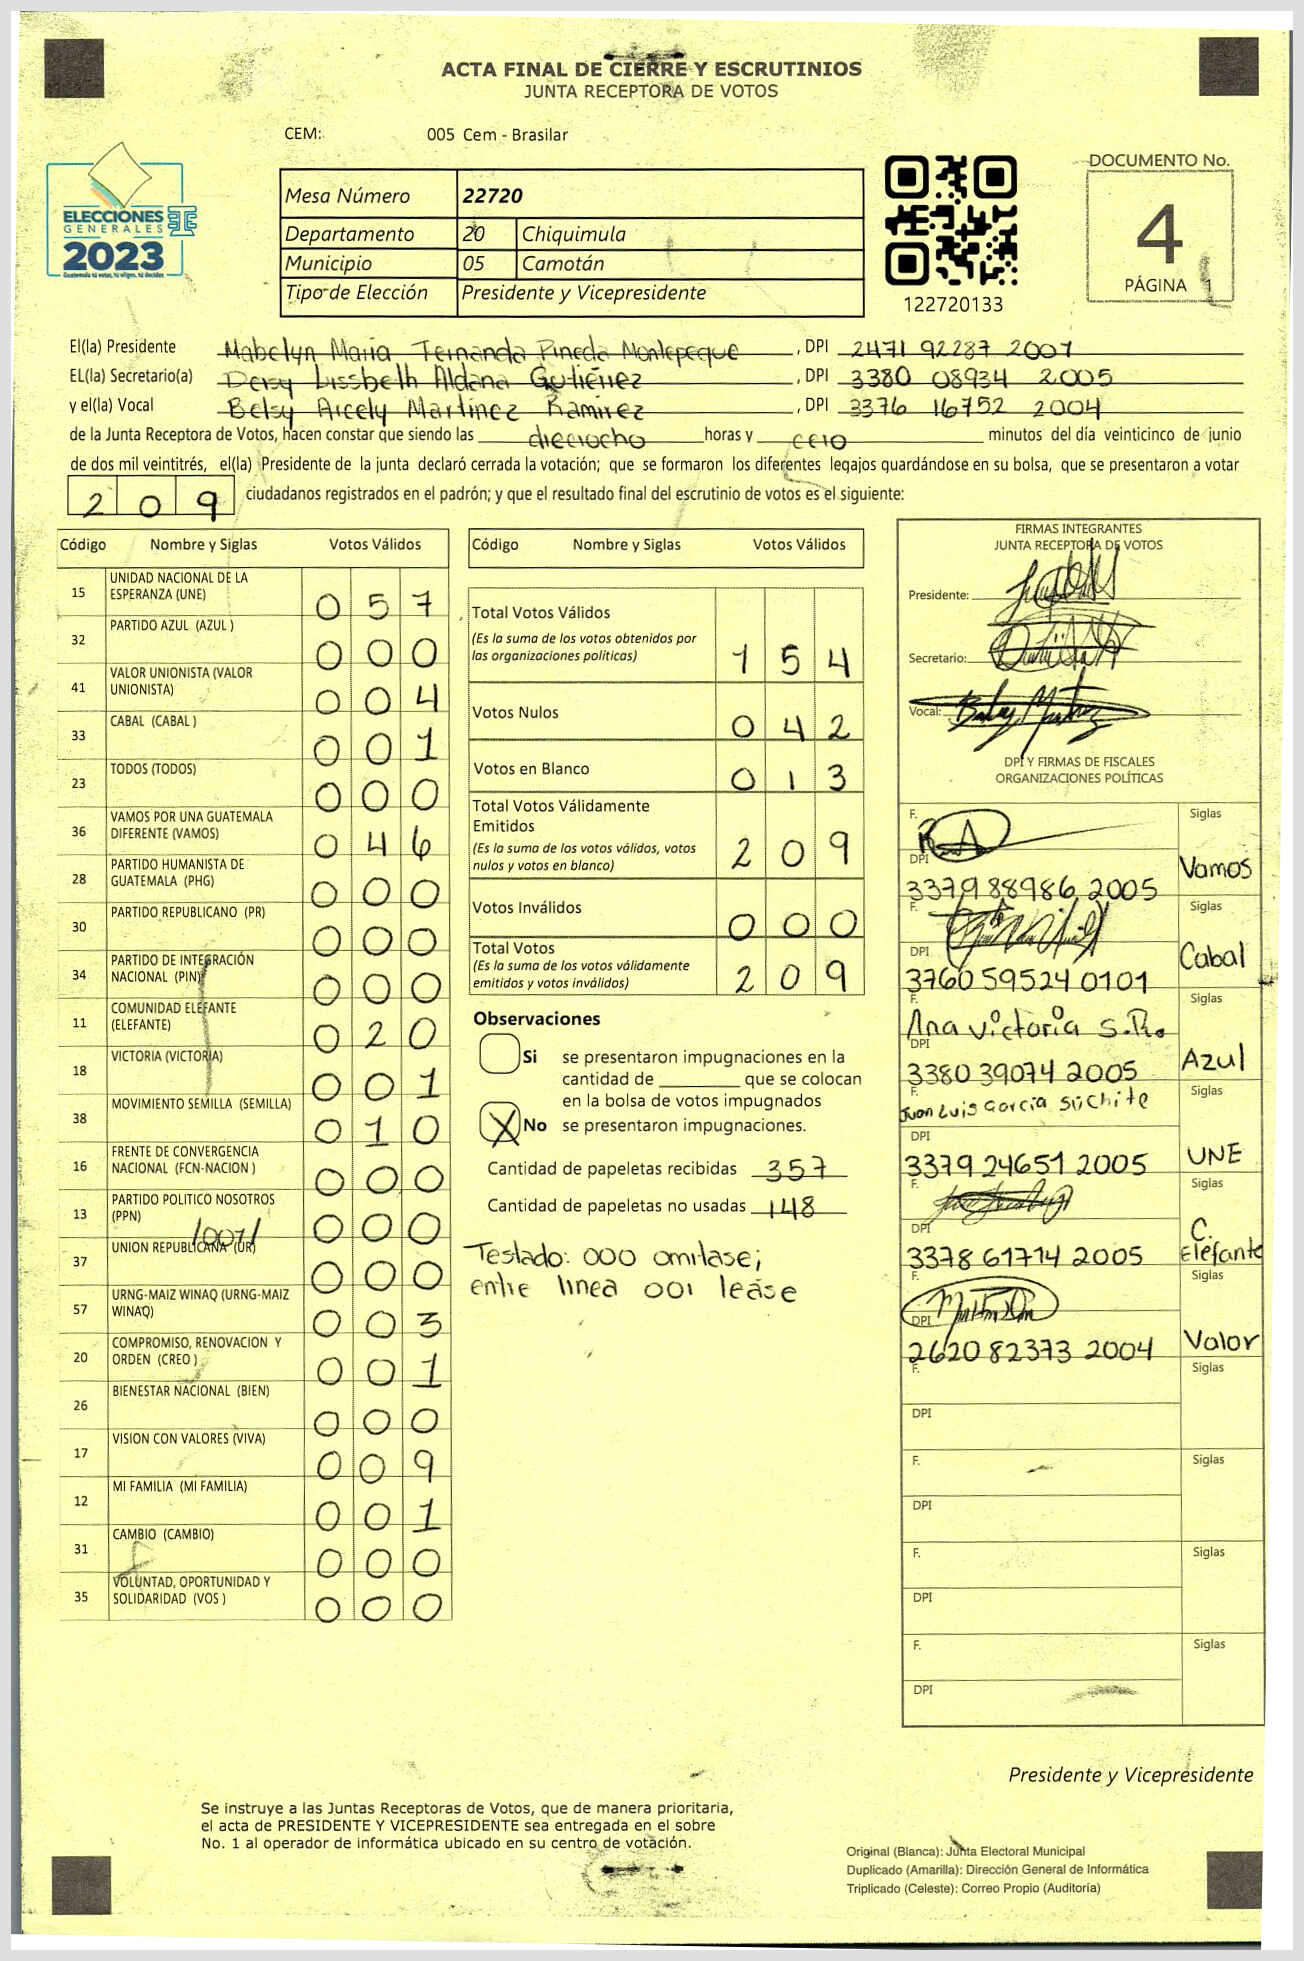 ACTA FINAL DE CIERRE Y ESCRUTINIOS
JUNTA RECEPTORA DE VOTOS
CEM: 005 Cem - Brasilar
ELECCIONES
GENERALES
2023
Guatemala tú votas, tú eliges, tú decides
Mesa Número 22720
Departamento 20 Chiquimula
Municipio 05 Camotán
Tipo de Elección Presidente y Vicepresidente
122720133
DOCUMENTO No.
4
PÁGINA 1
El(la) Presidente Mabelyn Maria Fernanda Pineda Montepeque , DPI 2471 92287 2007
EL(la) Secretario(a) Deisy Lissbeth Aldana Gutiérrez , DPI 3380 08934 2005
y el(la) Vocal Betsy Arcely Martínez Ramirez , DPI 3376 16752 2004
de la Junta Receptora de Votos, hacen constar que siendo las dieciocho horas y cero minutos del día veinticinco de junio
de dos mil veintitrés, el(la) Presidente de la junta declaró cerrada la votación; que se formaron los diferentes legajos guardándose en su bolsa, que se presentaron a votar
209 ciudadanos registrados en el padrón; y que el resultado final del escrutinio de votos es el siguiente:
Código Nombre y Siglas Votos Válidos
15 UNIDAD NACIONAL DE LA ESPERANZA (UNE) 057
32 PARTIDO AZUL (AZUL ) 000
41 VALOR UNIONISTA (VALOR UNIONISTA) 004
33 CABAL (CABAL ) 001
23 TODOS (TODOS) 000
36 VAMOS POR UNA GUATEMALA DIFERENTE (VAMOS) 046
28 PARTIDO HUMANISTA DE GUATEMALA (PHG) 000
30 PARTIDO REPUBLICANO (PR) 000
34 PARTIDO DE INTEGRACIÓN NACIONAL (PIN) 000
11 COMUNIDAD ELEFANTE (ELEFANTE) 020
18 VICTORIA (VICTORIA) 001
38 MOVIMIENTO SEMILLA (SEMILLA) 010
16 FRENTE DE CONVERGENCIA NACIONAL (FCN-NACION ) 000
13 PARTIDO POLITICO NOSOTROS (PPN) 000
/001/
37 UNION REPUBLICANA (UR) 000
57 URNG-MAIZ WINAQ (URNG-MAIZ WINAQ) 003
20 COMPROMISO, RENOVACION Y ORDEN (CREO ) 001
26 BIENESTAR NACIONAL (BIEN) 000
17 VISION CON VALORES (VIVA) 009
12 MI FAMILIA (MI FAMILIA) 001
31 CAMBIO (CAMBIO) 000
35 VOLUNTAD, OPORTUNIDAD Y SOLIDARIDAD (VOS ) 000
Código Nombre y Siglas Votos Válidos
Total Votos Válidos
(Es la suma de los votos obtenidos por
las organizaciones políticas) 154
Votos Nulos 042
Votos en Blanco 013
Total Votos Válidamente
Emitidos
(Es la suma de los votos válidos, votos
nulos y votos en blanco) 209
Votos Inválidos 000
Total Votos
(Es la suma de los votos válidamente
emitidos y votos inválidos) 209
Observaciones
Si se presentaron impugnaciones en la
cantidad de ________ que se colocan
en la bolsa de votos impugnados
X No se presentaron impugnaciones.
Cantidad de papeletas recibidas 357
Cantidad de papeletas no usadas 148
Testado: 000 omitase;
entre linea 001 lease
FIRMAS INTEGRANTES
JUNTA RECEPTORA DE VOTOS
Presidente:
Secretario:
Vocal:
DPI Y FIRMAS DE FISCALES
ORGANIZACIONES POLÍTICAS
F. Siglas
DPI 3379 88986 2005 Vamos
F. Siglas
DPI 3760 59524 0101 Cabal
F. Ana Victoria S.R. Siglas
DPI 3380 39074 2005 Azul
F. Juan Luis Garcia Súchite Siglas
DPI 3379 24651 2005 UNE
F. Siglas
DPI 3378 61714 2005 C. Elefante
F. Siglas
DPI 2620 82373 2004 Valor
F. Siglas
DPI
F. Siglas
DPI
F. Siglas
DPI
F. Siglas
DPI
Presidente y Vicepresidente
Se instruye a las Juntas Receptoras de Votos, que de manera prioritaria,
el acta de PRESIDENTE Y VICEPRESIDENTE sea entregada en el sobre
No. 1 al operador de informática ubicado en su centro de votación.
Original (Blanca): Junta Electoral Municipal
Duplicado (Amarilla): Dirección General de Informática
Triplicado (Celeste): Correo Propio (Auditoría)